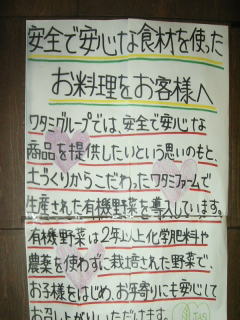 安全で安心な食材を使った
お料理をお客様へ
ワタミグループでは、安全で安心な
商品を提供したいという思いのもと、
土づくりからこだわったワタミファームで
生産された有機野菜を導入しています。
有機野菜は2年以上化学肥料や
農薬を使わずに栽培された野菜で、
お子様をはじめ、お年寄りにも安心して
お召し上がりいただけます。
JAS